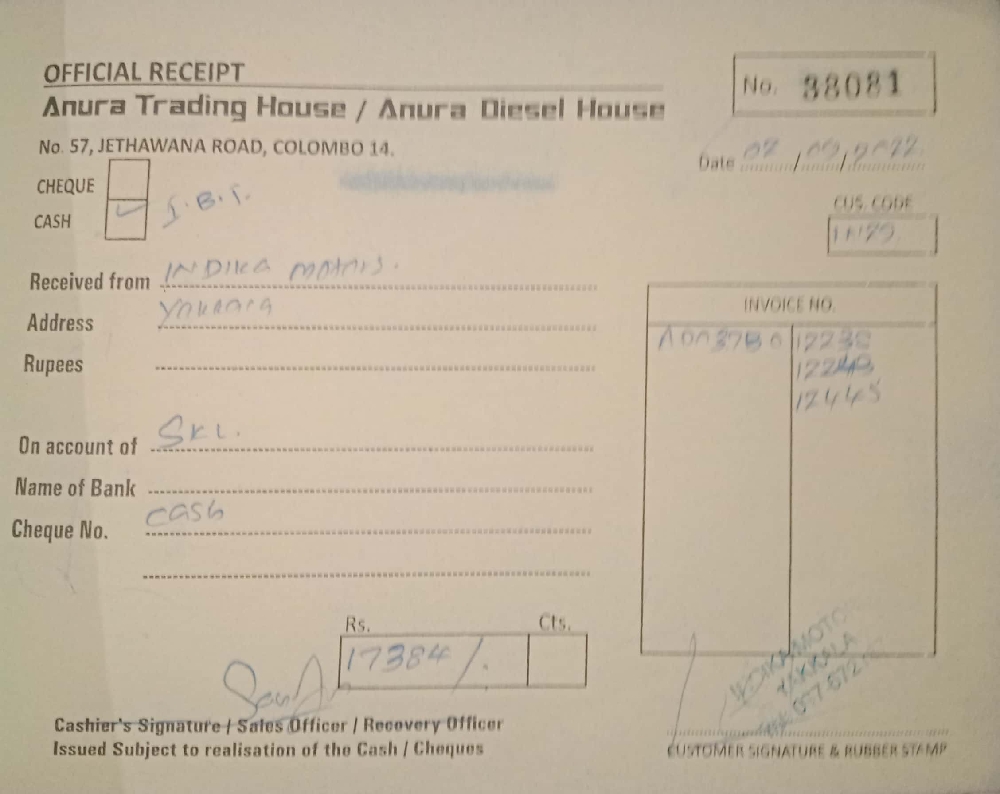 OFFICIAL RECEIPT
No. 38081
Anura Trading House / Anura Diesel House
No. 57, JETHAWANA ROAD, COLOMBO 14.
Date 02/09/2022
CHEQUE
CASH ✓ I.B.T.
CUS. CODE
IN89
Received from INDIKA MOTORS.
Address
Rupees
INVOICE NO.
12238
12243
12445
On account of SKL.
Name of Bank
Cheque No. cash
Rs. Cts.
17384/.
INDIKA MOTO
YAKKALA
Cashier's Signature / Sales Officer / Recovery Officer
Issued Subject to realisation of the Cash / Cheques
CUSTOMER SIGNATURE & RUBBER STAMP